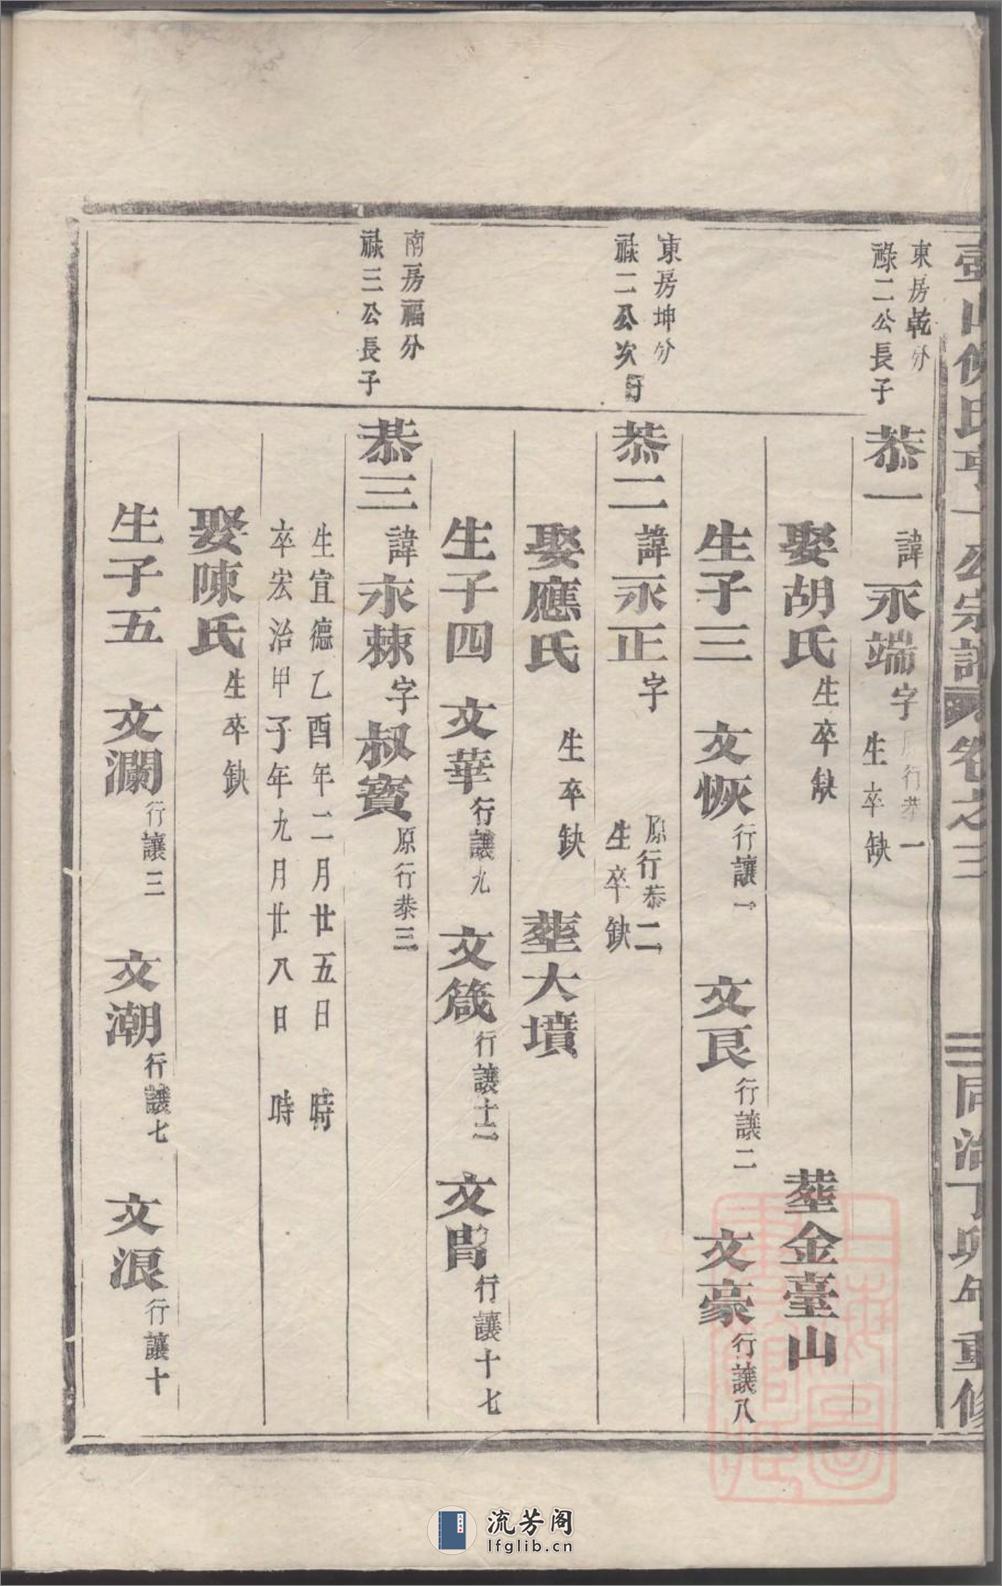 公宗譜
卷之三
三 同治丁卯年重修
東房乾分
祿二公長子
恭一 諱永端字 行恭一
生卒缺
娶胡氏 生卒缺 葬金臺山
生子三 文恢 行讓一 文艮 行讓二 文豪 行讓八
東房坤分
祿二公次
恭二 諱永正字 原行恭二
生卒缺
娶應氏 生卒缺 葬大墳
生子四 文華 行讓九 文箴 行讓十二 文胄 行讓十七
南房福分
祿三公長子
恭三 諱永棘字叔寶 原行恭三
生宣德乙酉年二月廿五日 時
卒宏治甲子年九月廿八日 時
娶陳氏 生卒缺
生子五 文瀾 行讓三 文潮 行讓七 文浪 行讓十
流芳阁
lfglib.cn